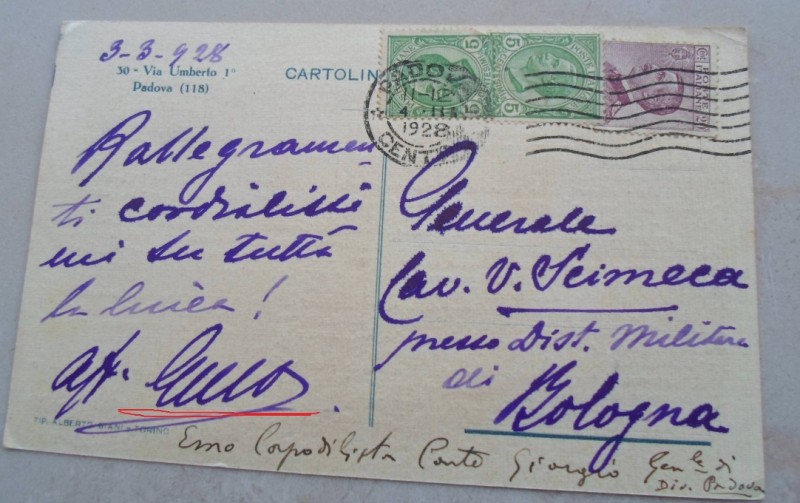 3-3-928
30 - Via Umberto 1°
Padova (118)
CARTOLIN
PADOVA
1928
CENT
5
5
Rallegramen
ti cordialissi
mi su tutta
la linea!
aff.
Generale
Cav. V. Scimeca
presso Dist. Militare
di
Bologna
TIP. ALBERTO GIANI - TORINO
Emo Capodilista Conte Giorgio Gen.le di
Div. Padova